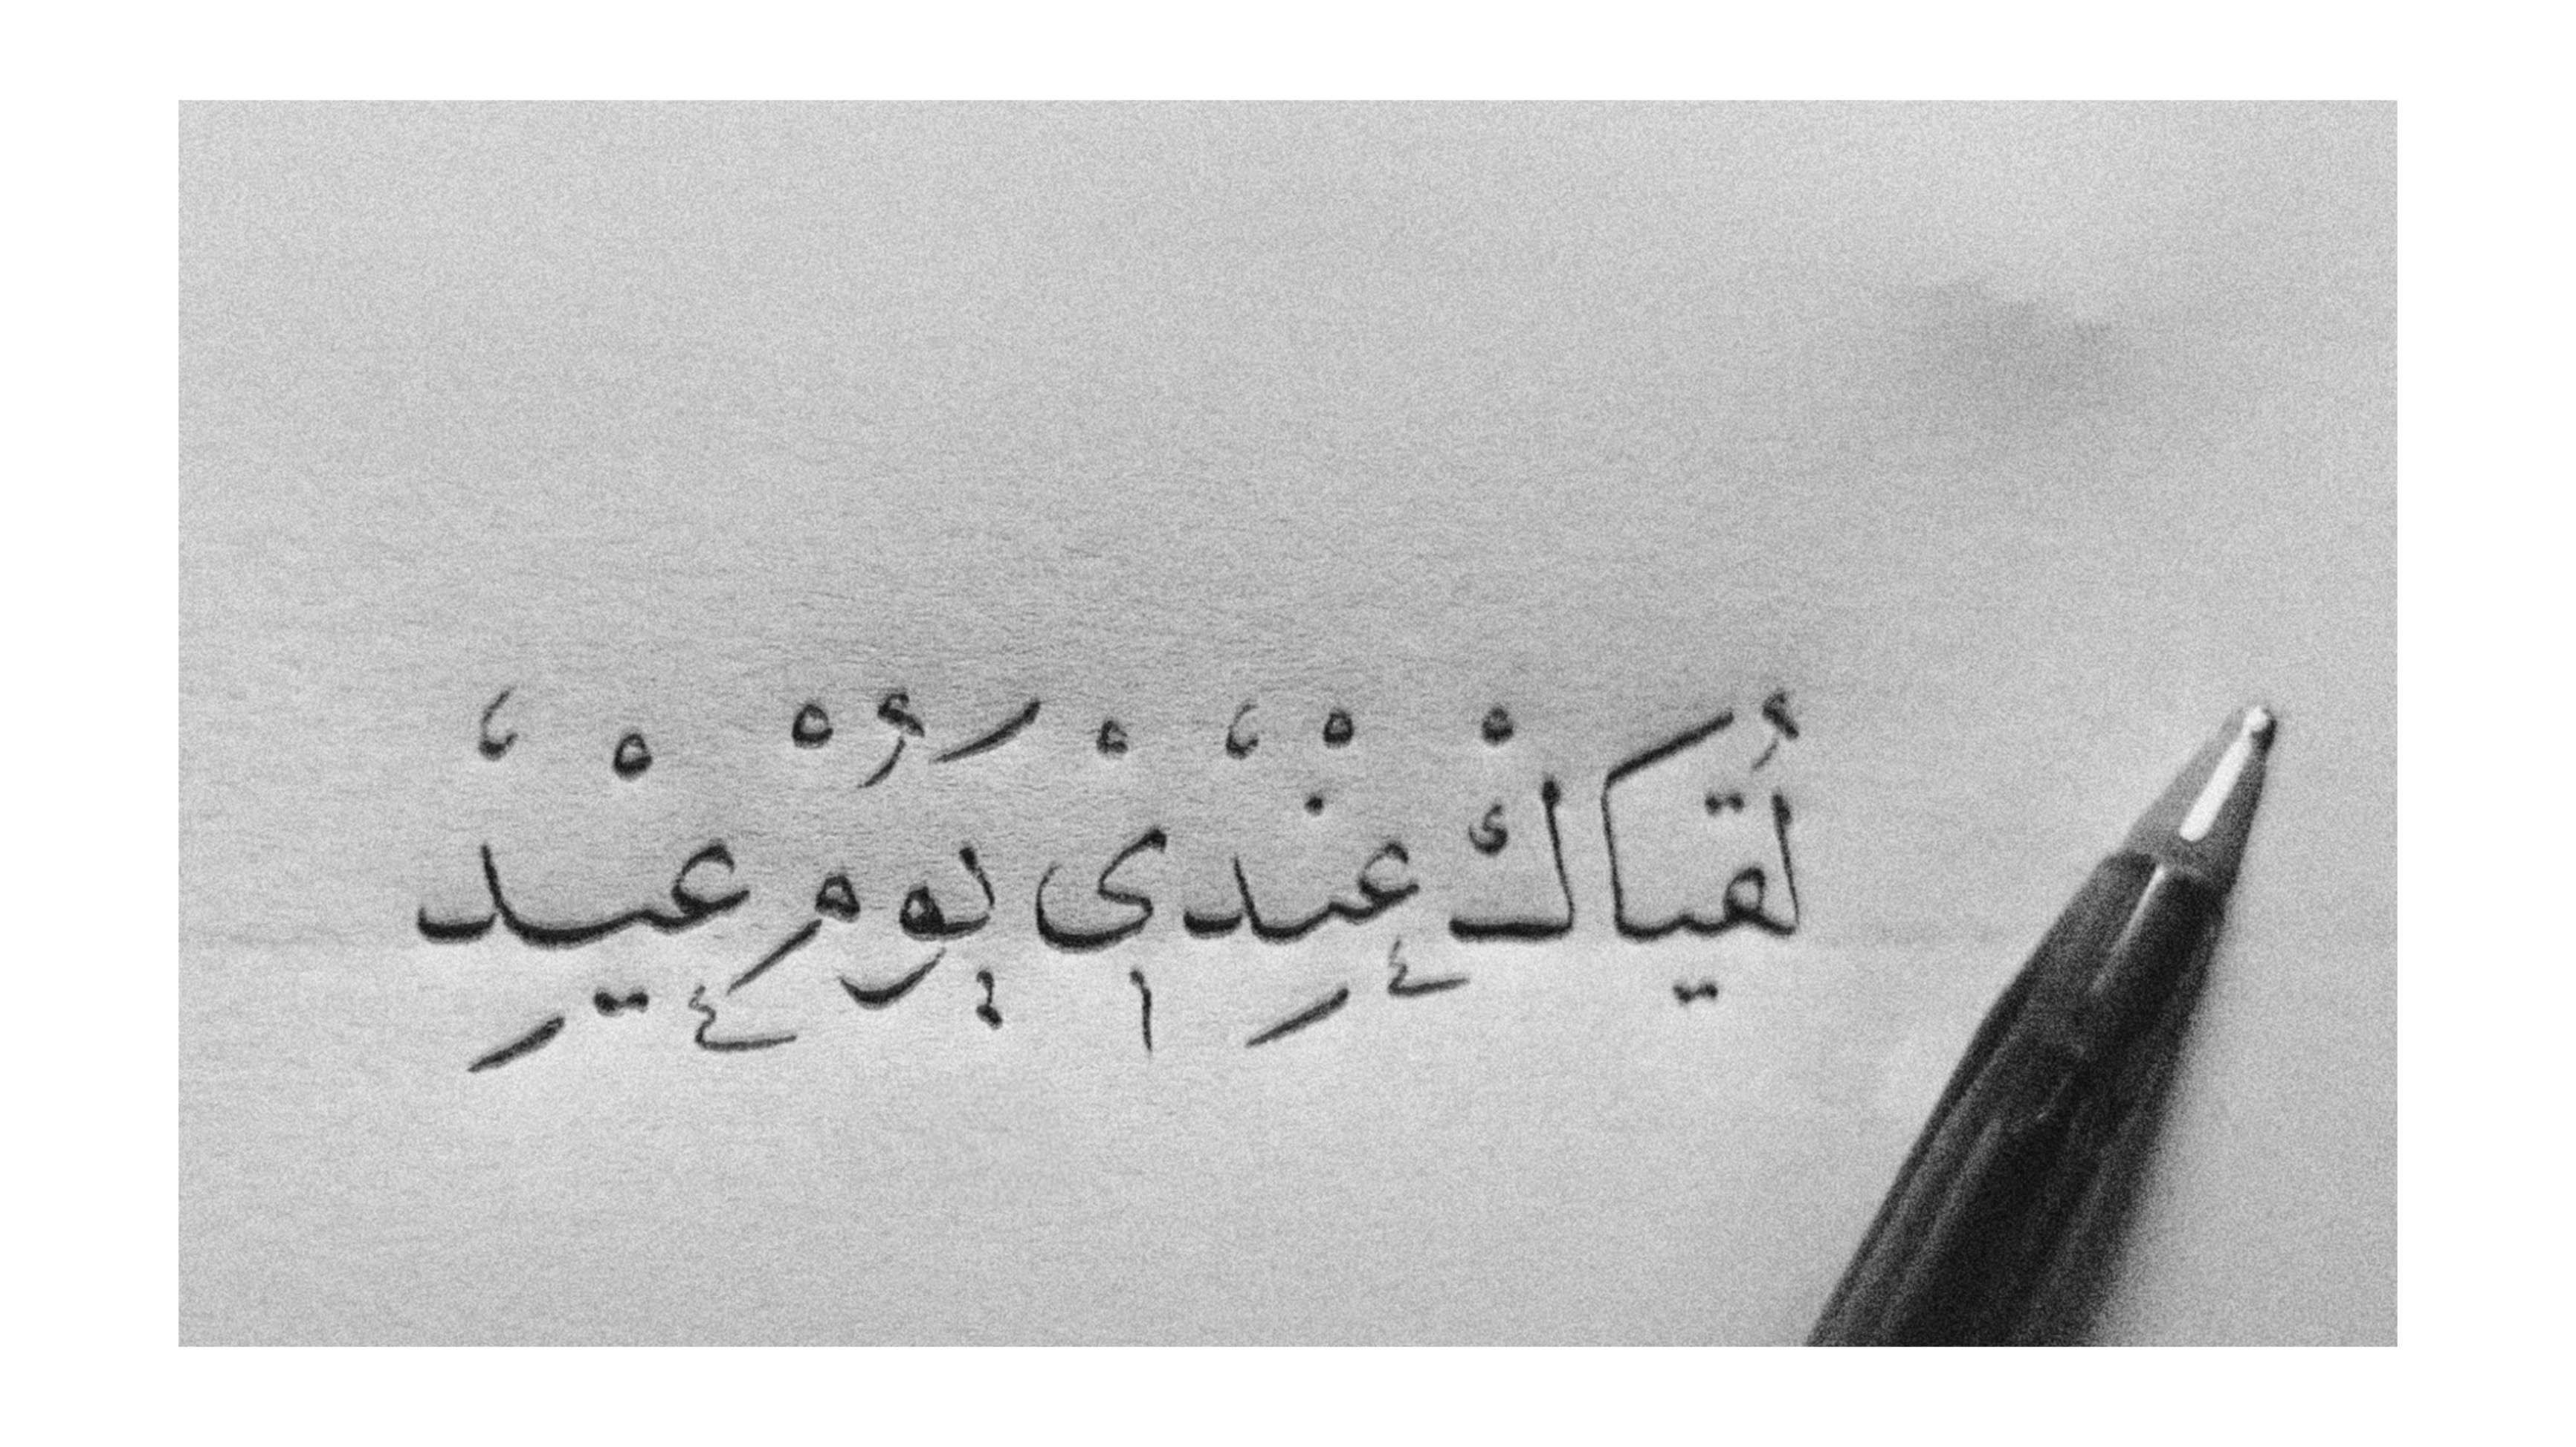 لُقيَاكْ عِنْدىْ يَومُْ عِيْد